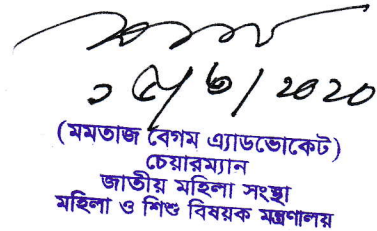 ১৫/৬/২০২০
(মমতাজ বেগম এ্যাডভোকেট)
চেয়ারম্যান
জাতীয় মহিলা সংস্থা
মহিলা ও শিশু বিষয়ক মন্ত্রণালয়